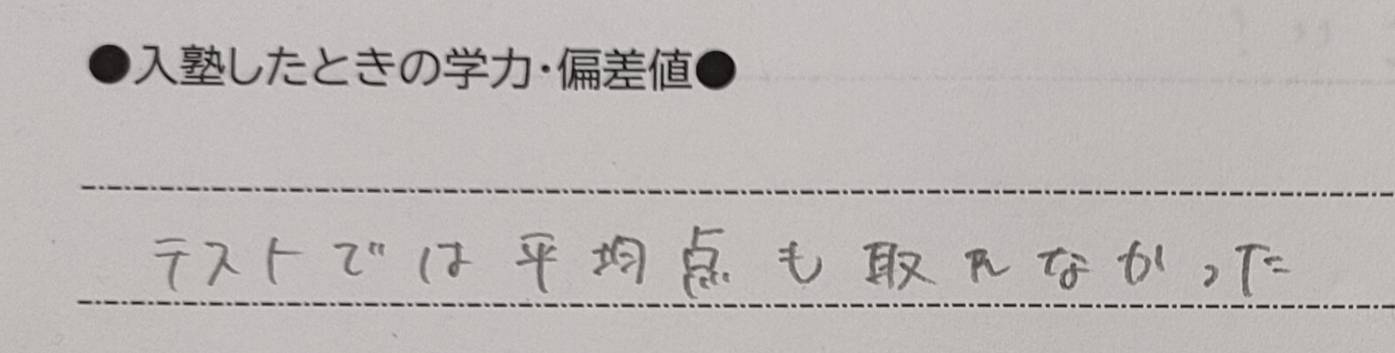 ●入塾したときの学力・偏差値●
テストでは平均点も取れなかった